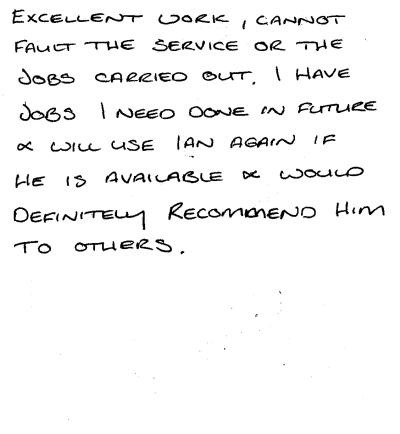 EXCELLENT WORK, CANNOT
FAULT THE SERVICE OR THE
JOBS CARRIED OUT. I HAVE
JOBS I NEED DONE IN FUTURE
& WILL USE IAN AGAIN IF
HE IS AVAILABLE & WOULD
DEFINITELY RECOMMEND HIM
TO OTHERS.